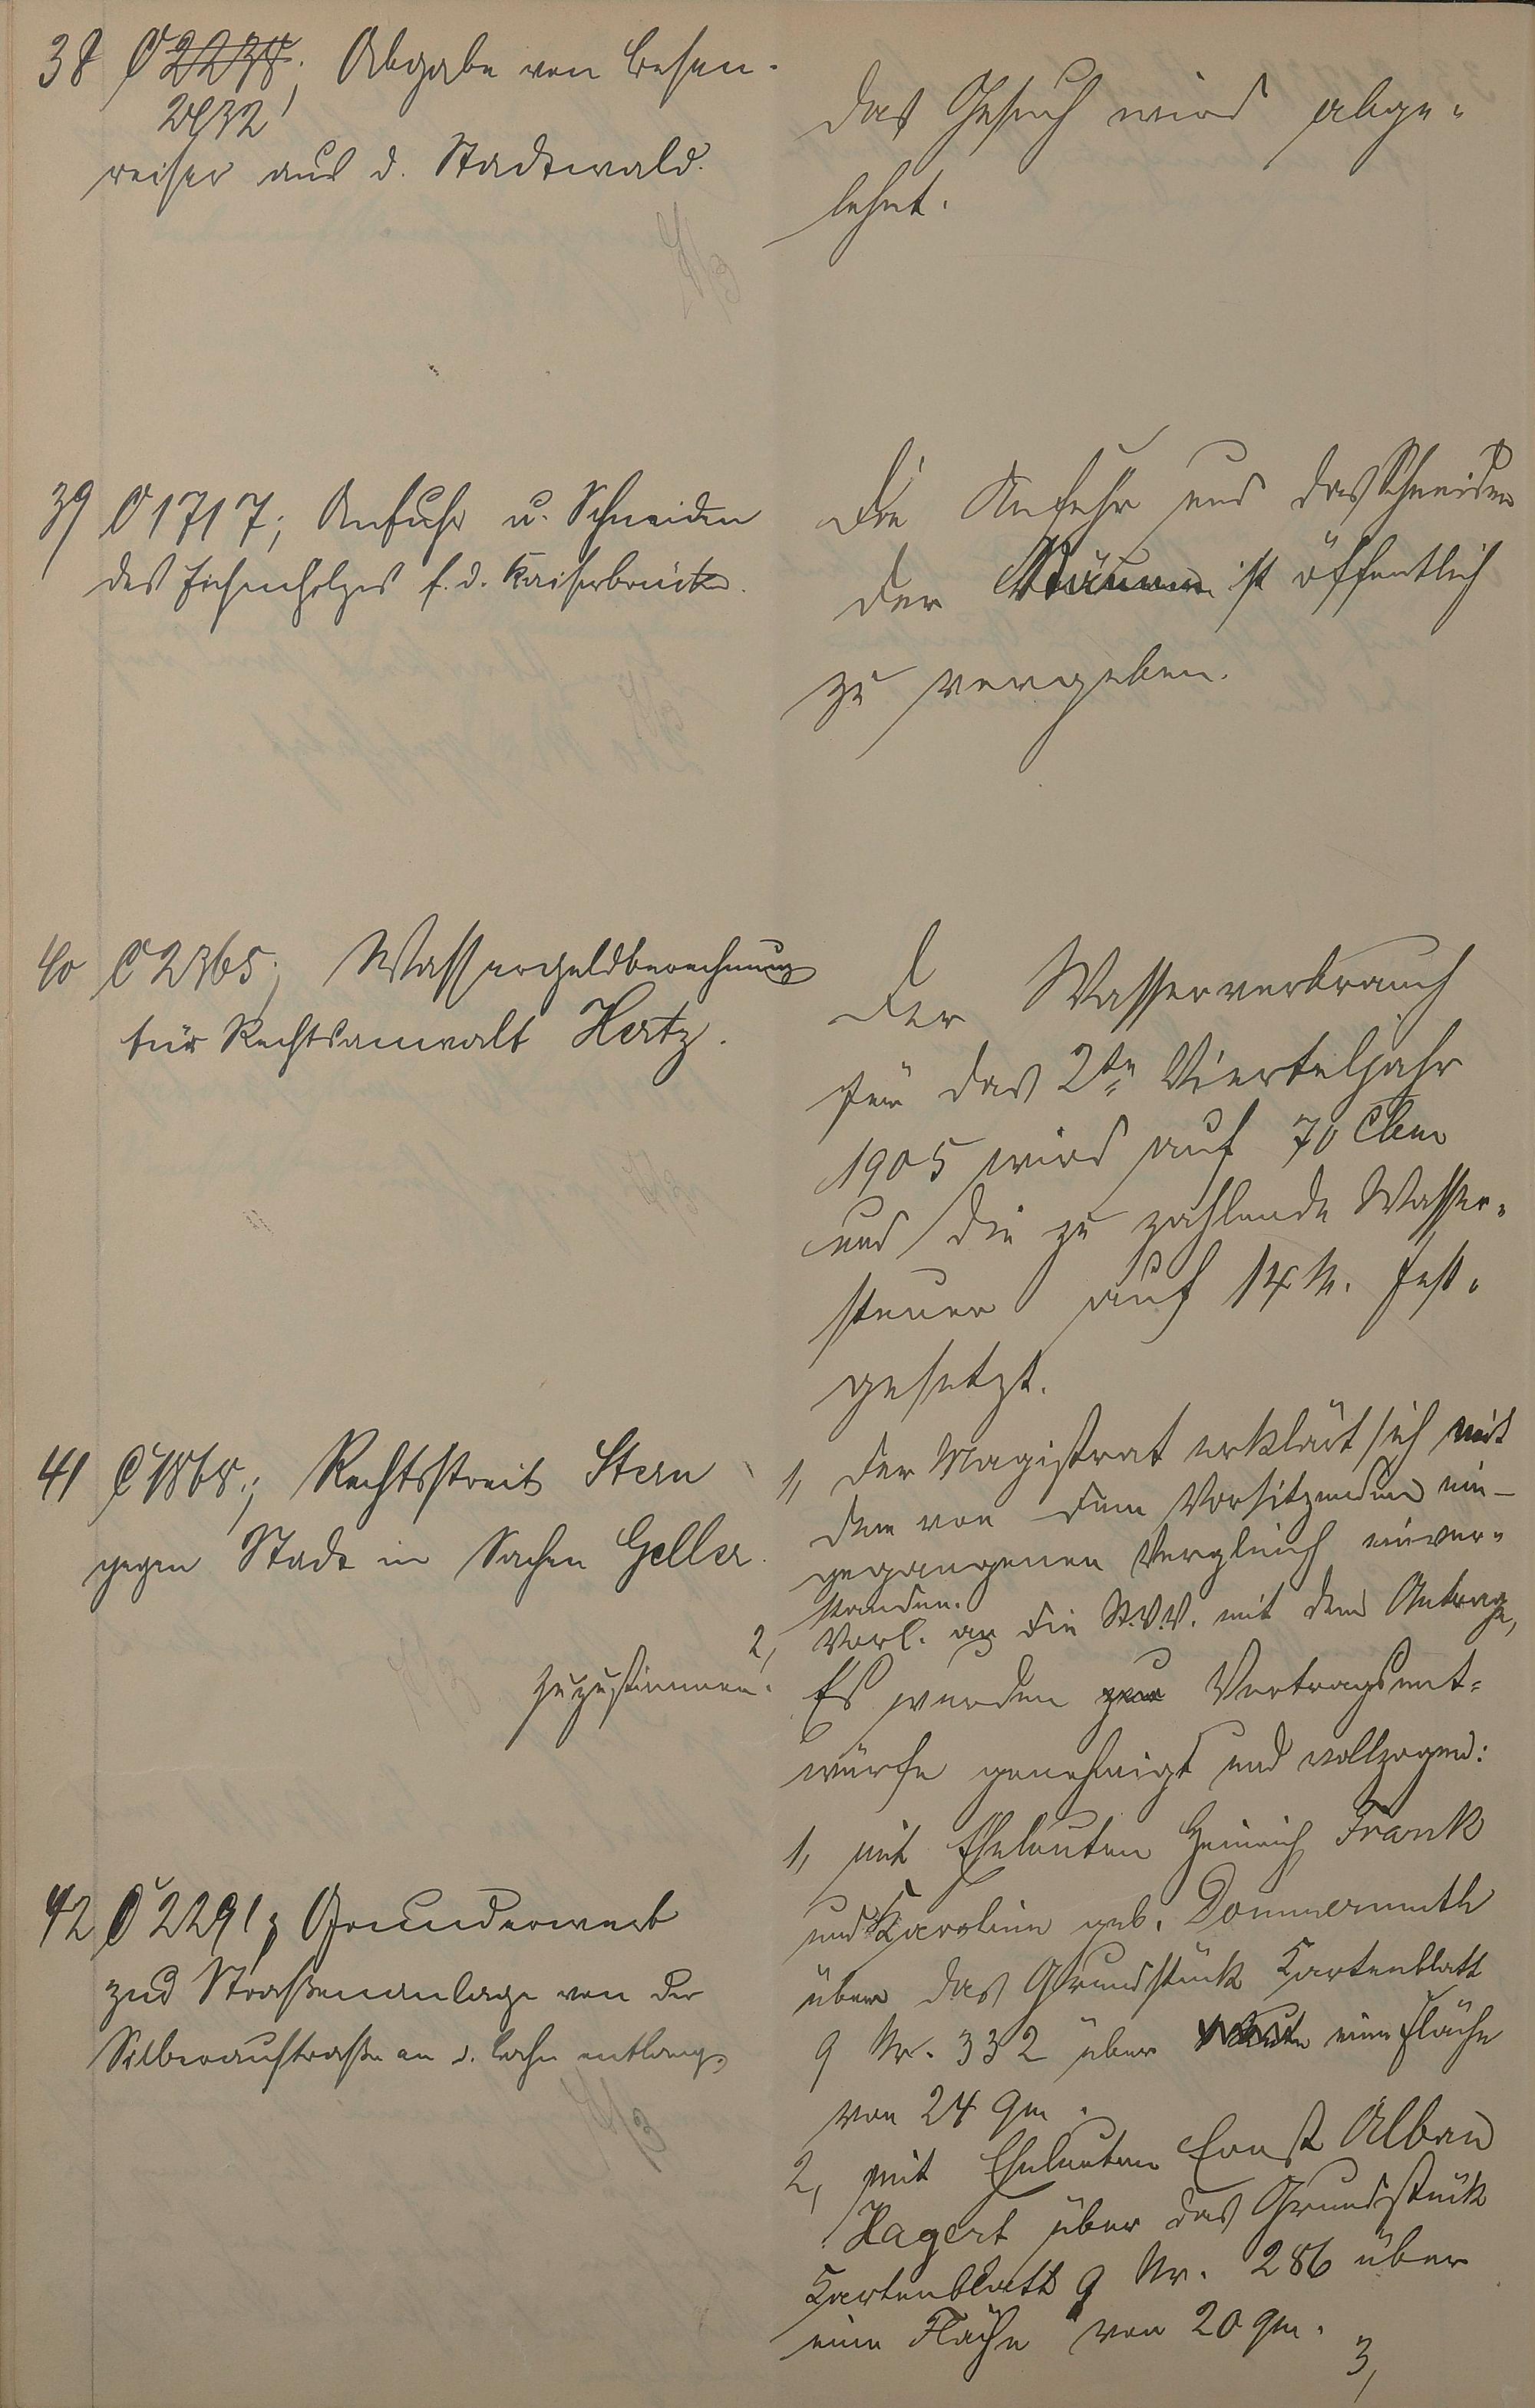 38 C 2278; Abgabe von Besen-
2432
reiser aus d. Stadtwald.
Das Gesuch wird abge-
lehnt.
39 C 1717; Anfuhr u. Schneiden
des Eichenholzes f. d. Kaiserbrücke.
Die Anfuhr und das Schneiden
der Stämme ist öffentlich
zu vergeben.
40 C 2365; Wassergeldberechnung
für Rechtsanwalt Hertz.
Der Wasserverbrauch
für das 2te Vierteljahr
1905 wird auf 70 Cbm
und die zu zahlende Wasser-
steuer auf 14 M. fest-
gesetzt.
41 C 1868; Rechtsstreit Stern
gegen Stadt in Sachen Geller.
1, Der Magistrat erklärt sich mit
dem von dem Vorsitzenden ein-
gegangenen Vergleich einver-
standen.
2, Vorl. an die St.V.V. mit dem Antrage,
zuzustimmen.
42 C 2291; Grunderwerb
zur Straßenanlage von der
Silberaustraße an d. Lahn entlang.
Es wurden Vertragsent-
würfe genehmigt und vollzogen:
1, mit Eheleuten Heinrich Frank
und Karoline geb. Dommermuth
über das Grundstück Kartenblatt
9 Nr. 332 über eine Fläche
von 24 qm.
2, mit Eheleuten Ernst Alban
Hagert über das Grundstück
Kartenblatt 9 Nr. 286 über
eine Fläche von 20 qm.
3,